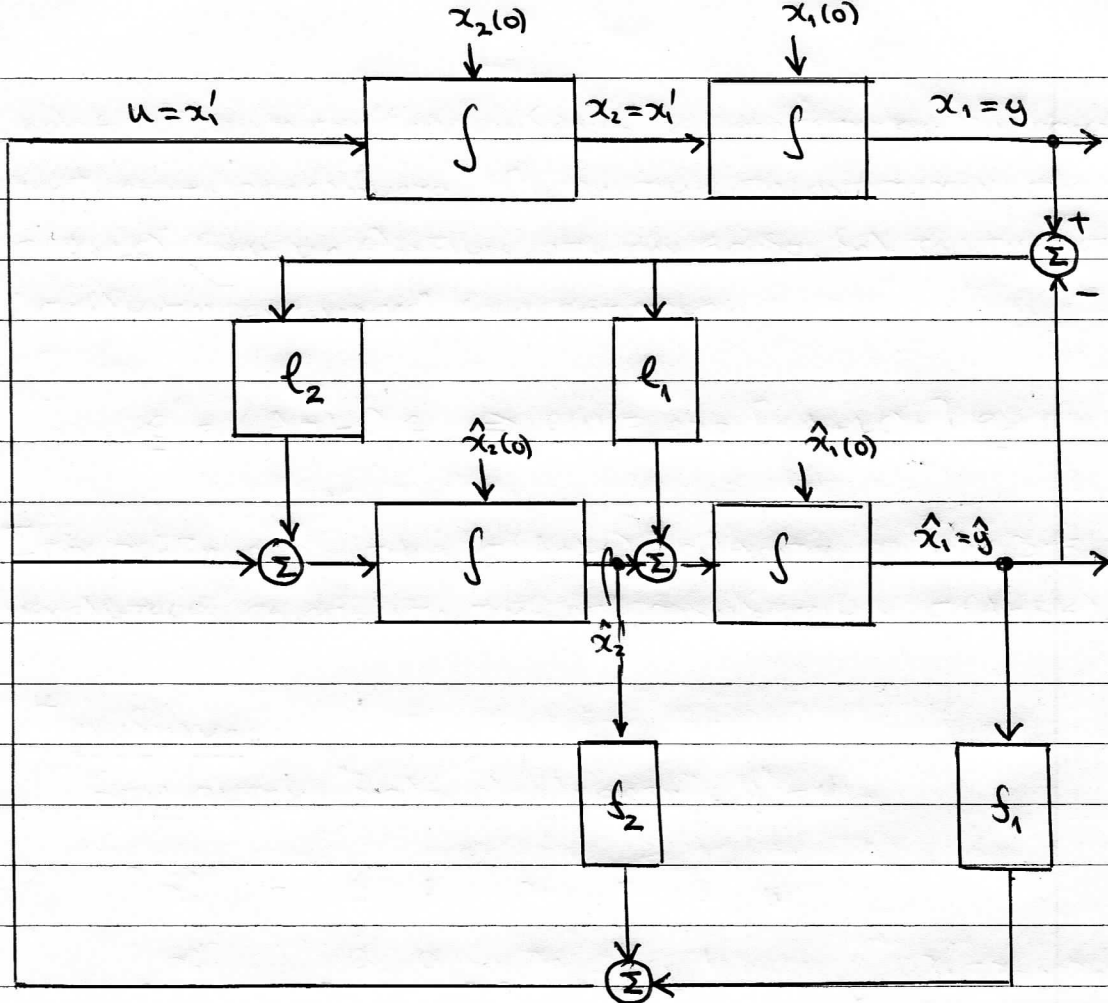 x₂(0)
x₁(0)
u = x₁'
∫
x₂ = x₁'
∫
x₁ = y
+
Σ
-
ℓ₂
ℓ₁
x̂₂(0)
x̂₁(0)
Σ
∫
Σ
∫
x̂₁ = ŷ
x̂₂
f₂
f₁
Σ